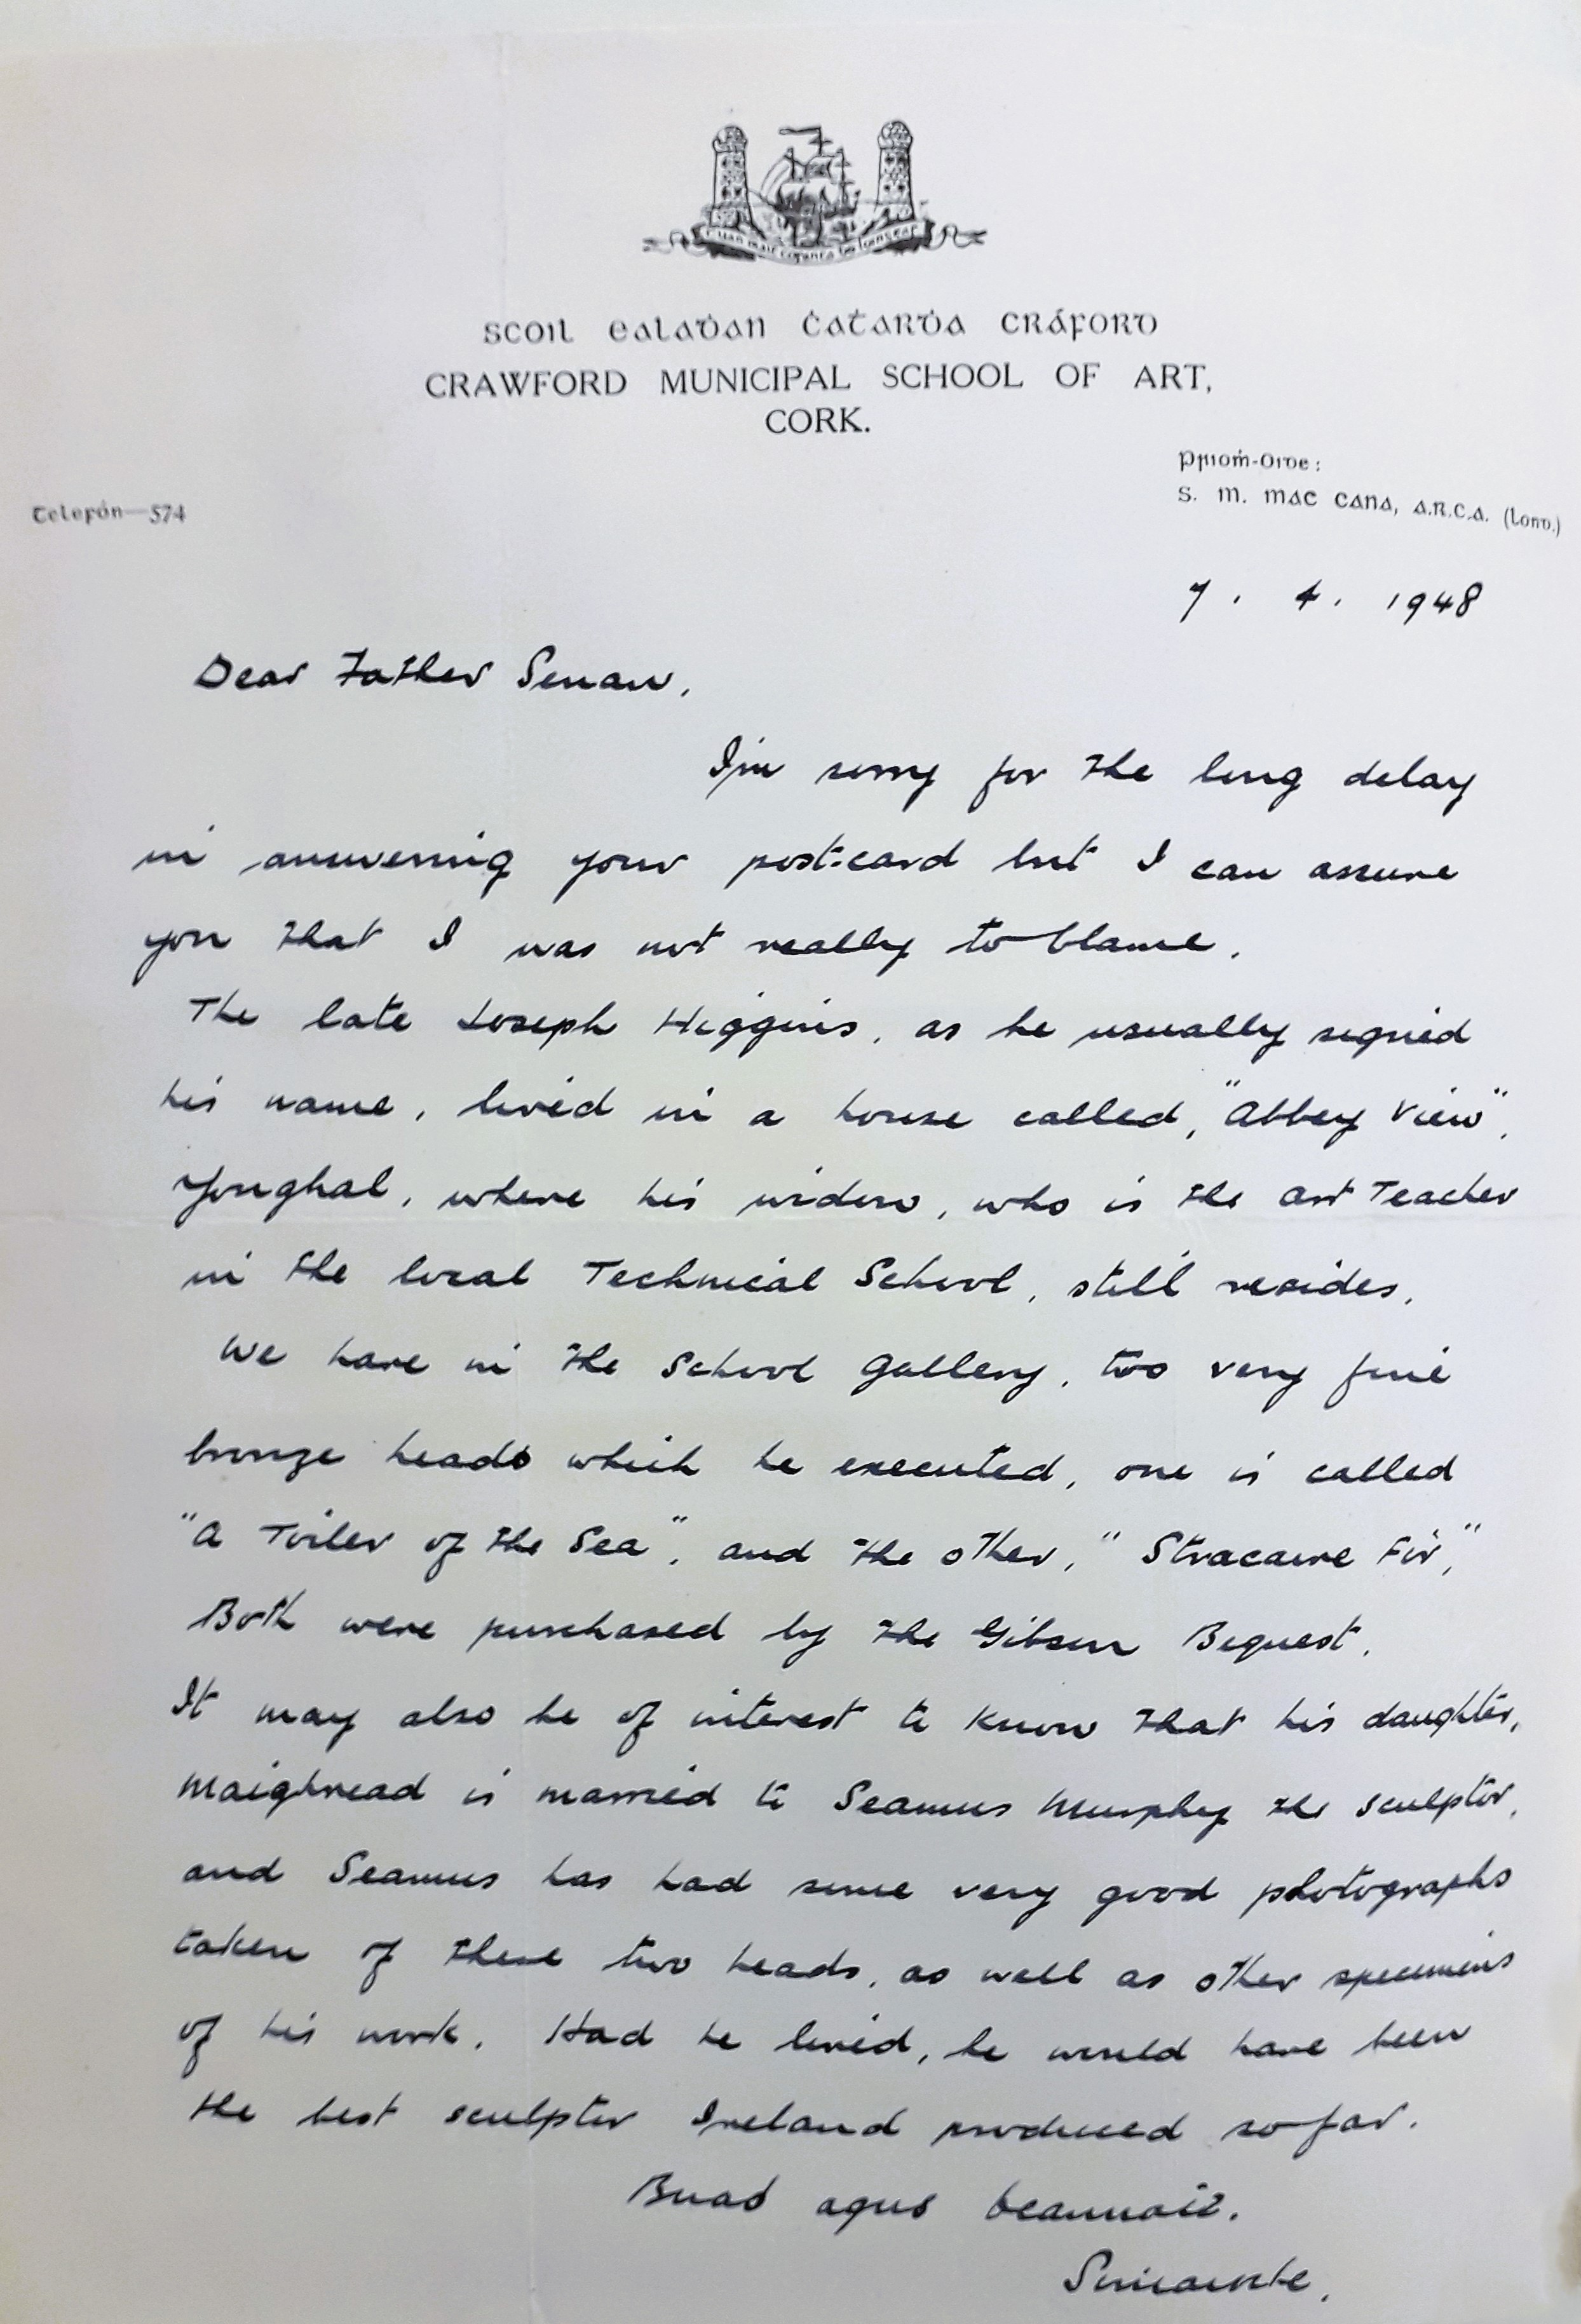 scoil ealaḋan ċaṫarḋa cráford
CRAWFORD MUNICIPAL SCHOOL OF ART,
CORK.
Príoṁ-Oide:
S. M. Mac Cana, A.R.C.A. (Lond.)
Telefón—574
7. 4. 1948
Dear Father Senan,
I'm sorry for the long delay
in answering your post-card but I can assure
you that I was not really to blame.
The late Joseph Higgins, as he usually signed
his name, lived in a house called, "Abbey View",
Youghal, where his widow, who is the art Teacher
in the local Technical School, still resides.
We have in the School Gallery, two very fine
bronze heads which he executed, one is called
"A Toiler of the Sea", and the other, "Stracaire Fir,"
Both were purchased by the Gibson Bequest.
It may also be of interest to know that his daughter,
Maighread is married to Seamus Murphy the sculptor,
and Seamus has had some very good photographs
taken of these two heads, as well as other specimens
of his work. Had he lived, he would have been
the best sculptor Ireland produced so far.
Buaḋ agus beannaċt.